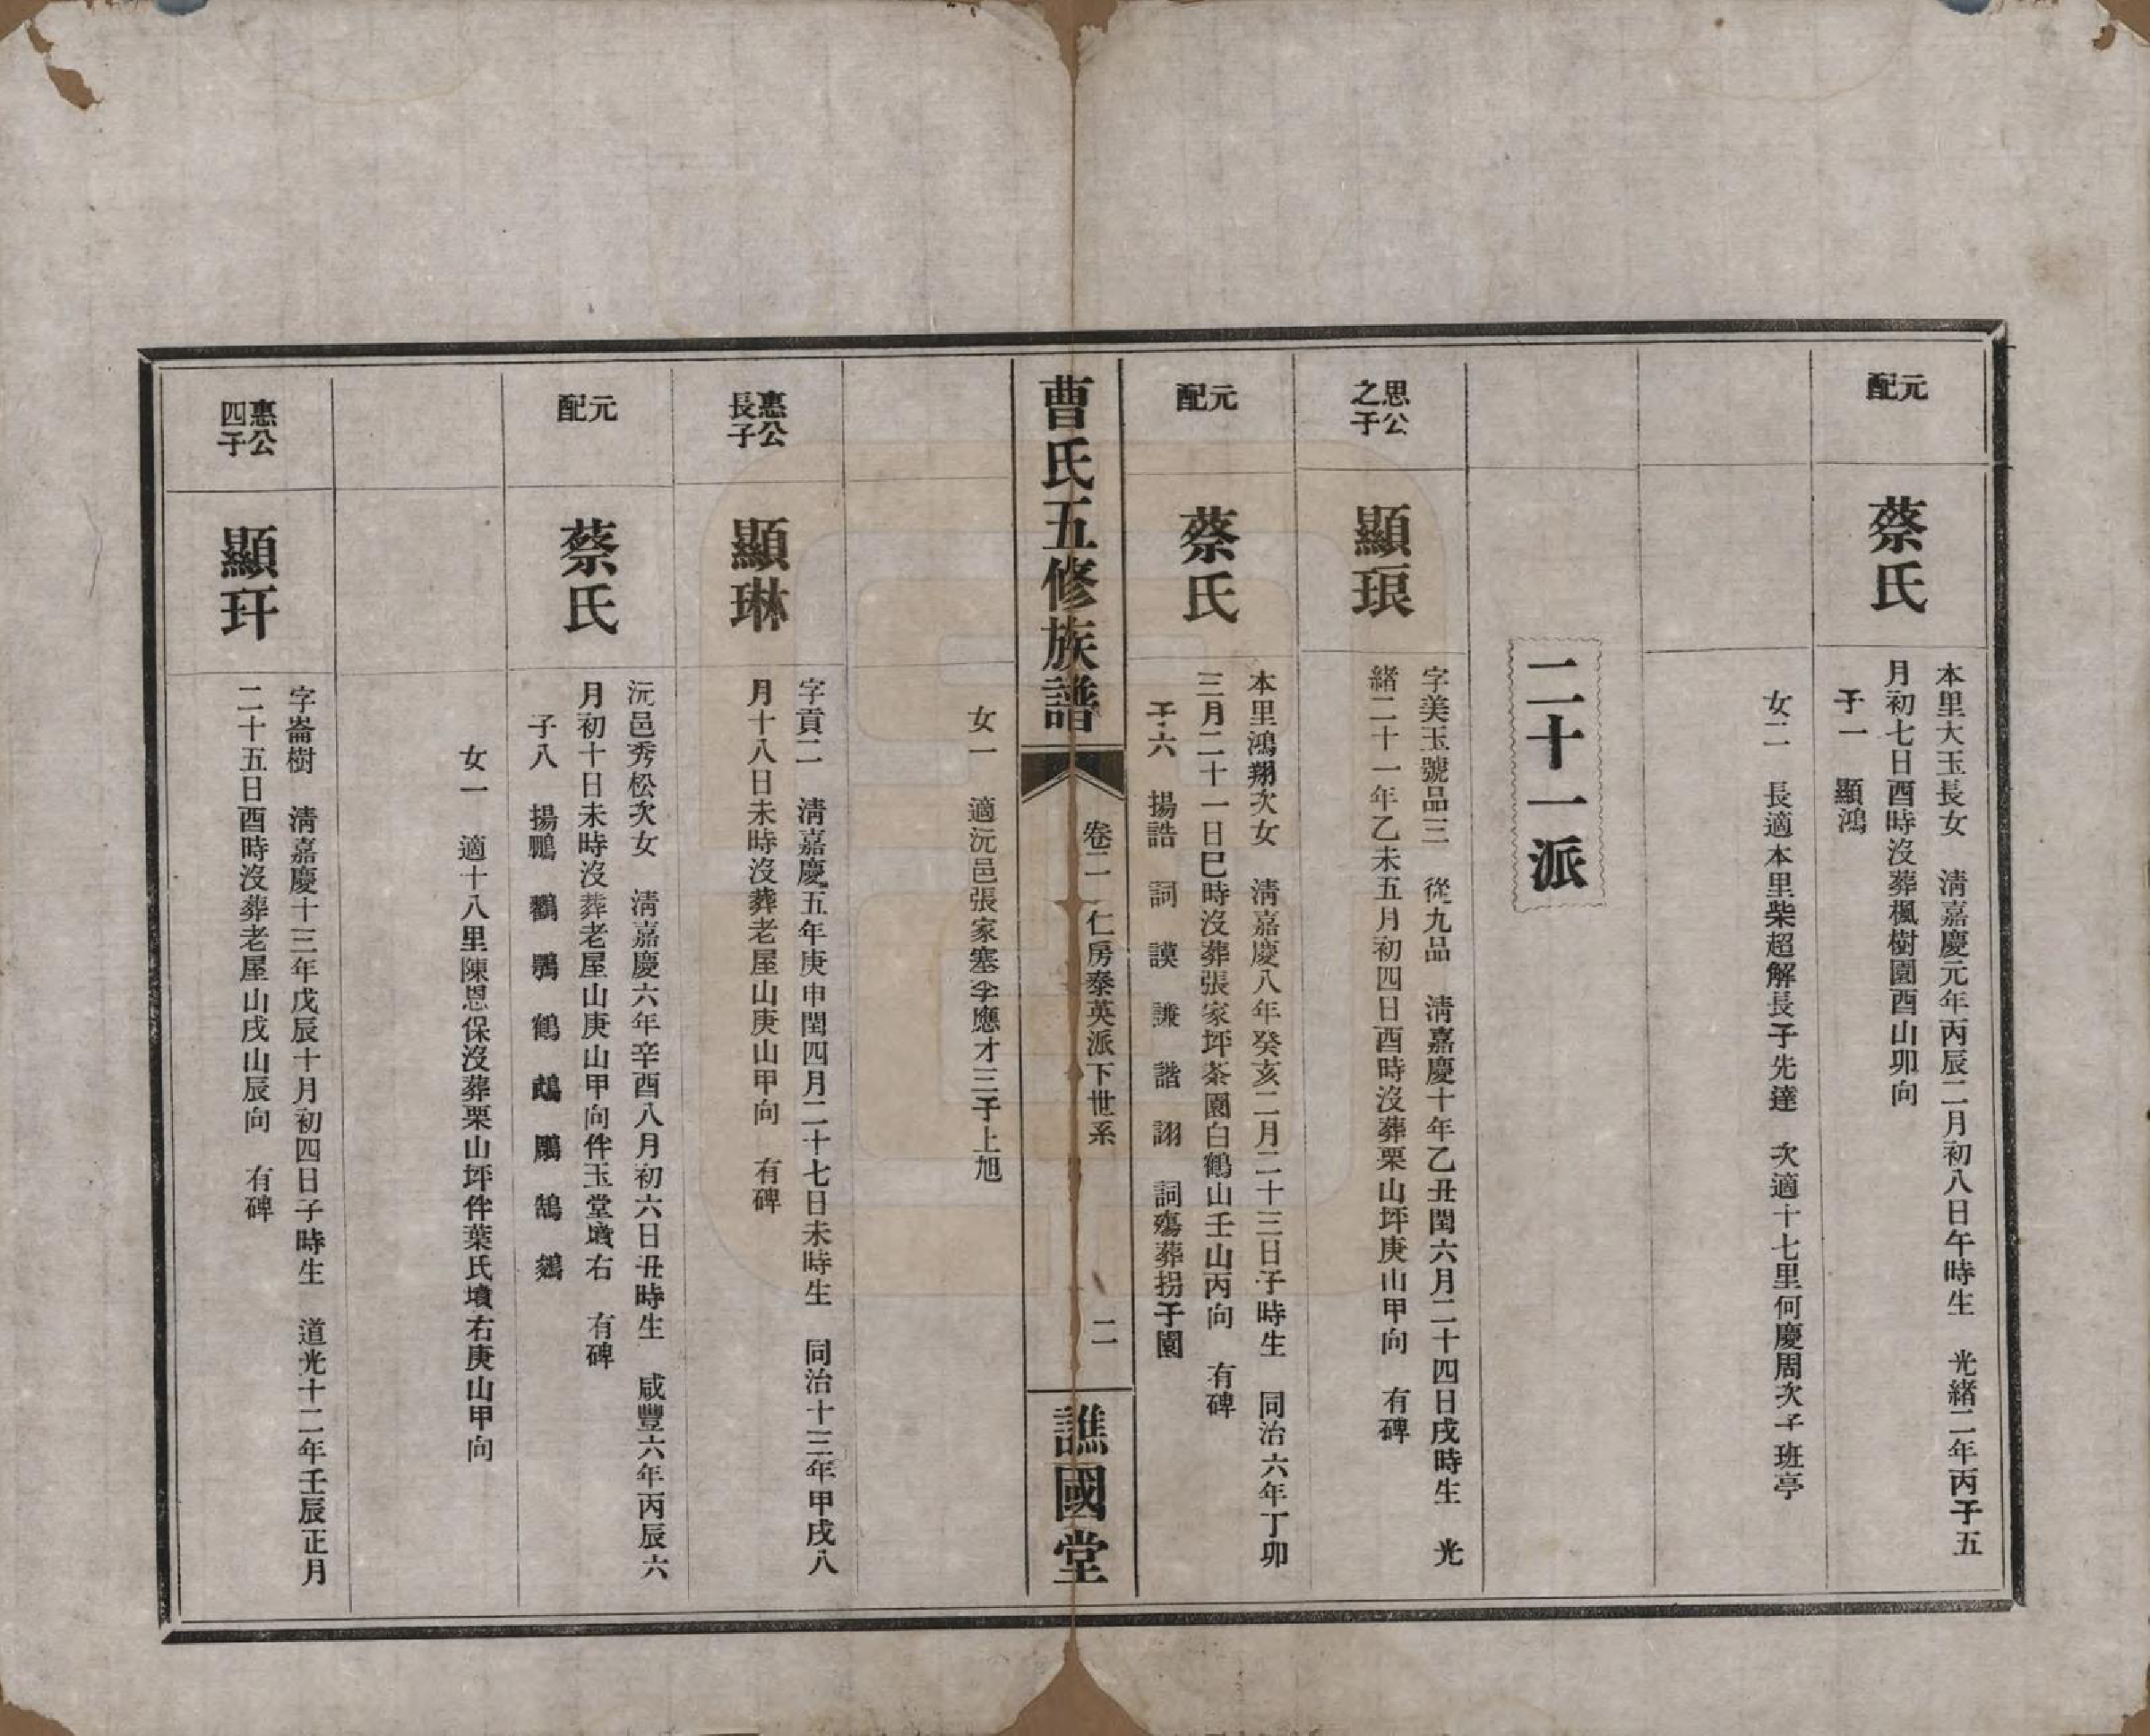 元配
蔡氏
本里大玉長女　清嘉慶元年丙辰二月初八日午時生　光緒二年丙子五
月初七日酉時沒葬楓樹園酉山卯向
子一　顯鴻
女二　長適本里柴超解長子先達　次適十七里何慶周次子班亭
二十一派
思公之子
顯琅
字美玉號品三　從九品　清嘉慶十年乙丑閏六月二十四日戌時生　光
緒二十一年乙未五月初四日酉時沒葬栗山坪庚山甲向　有碑
元配
蔡氏
本里鴻翔次女　清嘉慶八年癸亥二月二十三日子時生　同治六年丁卯
三月二十一日巳時沒葬張家坪茶園白鶴山壬山丙向　有碑
子六　揚誥　詞　謨　謙　諧　詡　詞殤葬拐子園
曹氏五修族譜
卷二　仁房泰英派下世系
二
譙國堂
女一　適沅邑張家塞李應才三子上旭
惠公長子
顯琳
字貢二　清嘉慶五年庚申閏四月二十七日未時生　同治十三年甲戌八
月十八日未時沒葬老屋山庚山甲向　有碑
元配
蔡氏
沅邑秀松次女　清嘉慶六年辛酉八月初六日丑時生　咸豐六年丙辰六
月初十日未時沒葬老屋山庚山甲向伴玉堂墳右　有碑
子八　揚鵬　鸛　鶚　鶴　鷸　鵰　鵠　鵷
女一　適十八里陳恩保沒葬栗山坪伴葉氏墳右庚山甲向
惠公四子
顯玕
字崙樹　清嘉慶十三年戊辰十月初四日子時生　道光十二年壬辰正月
二十五日酉時沒葬老屋山戌山辰向　有碑